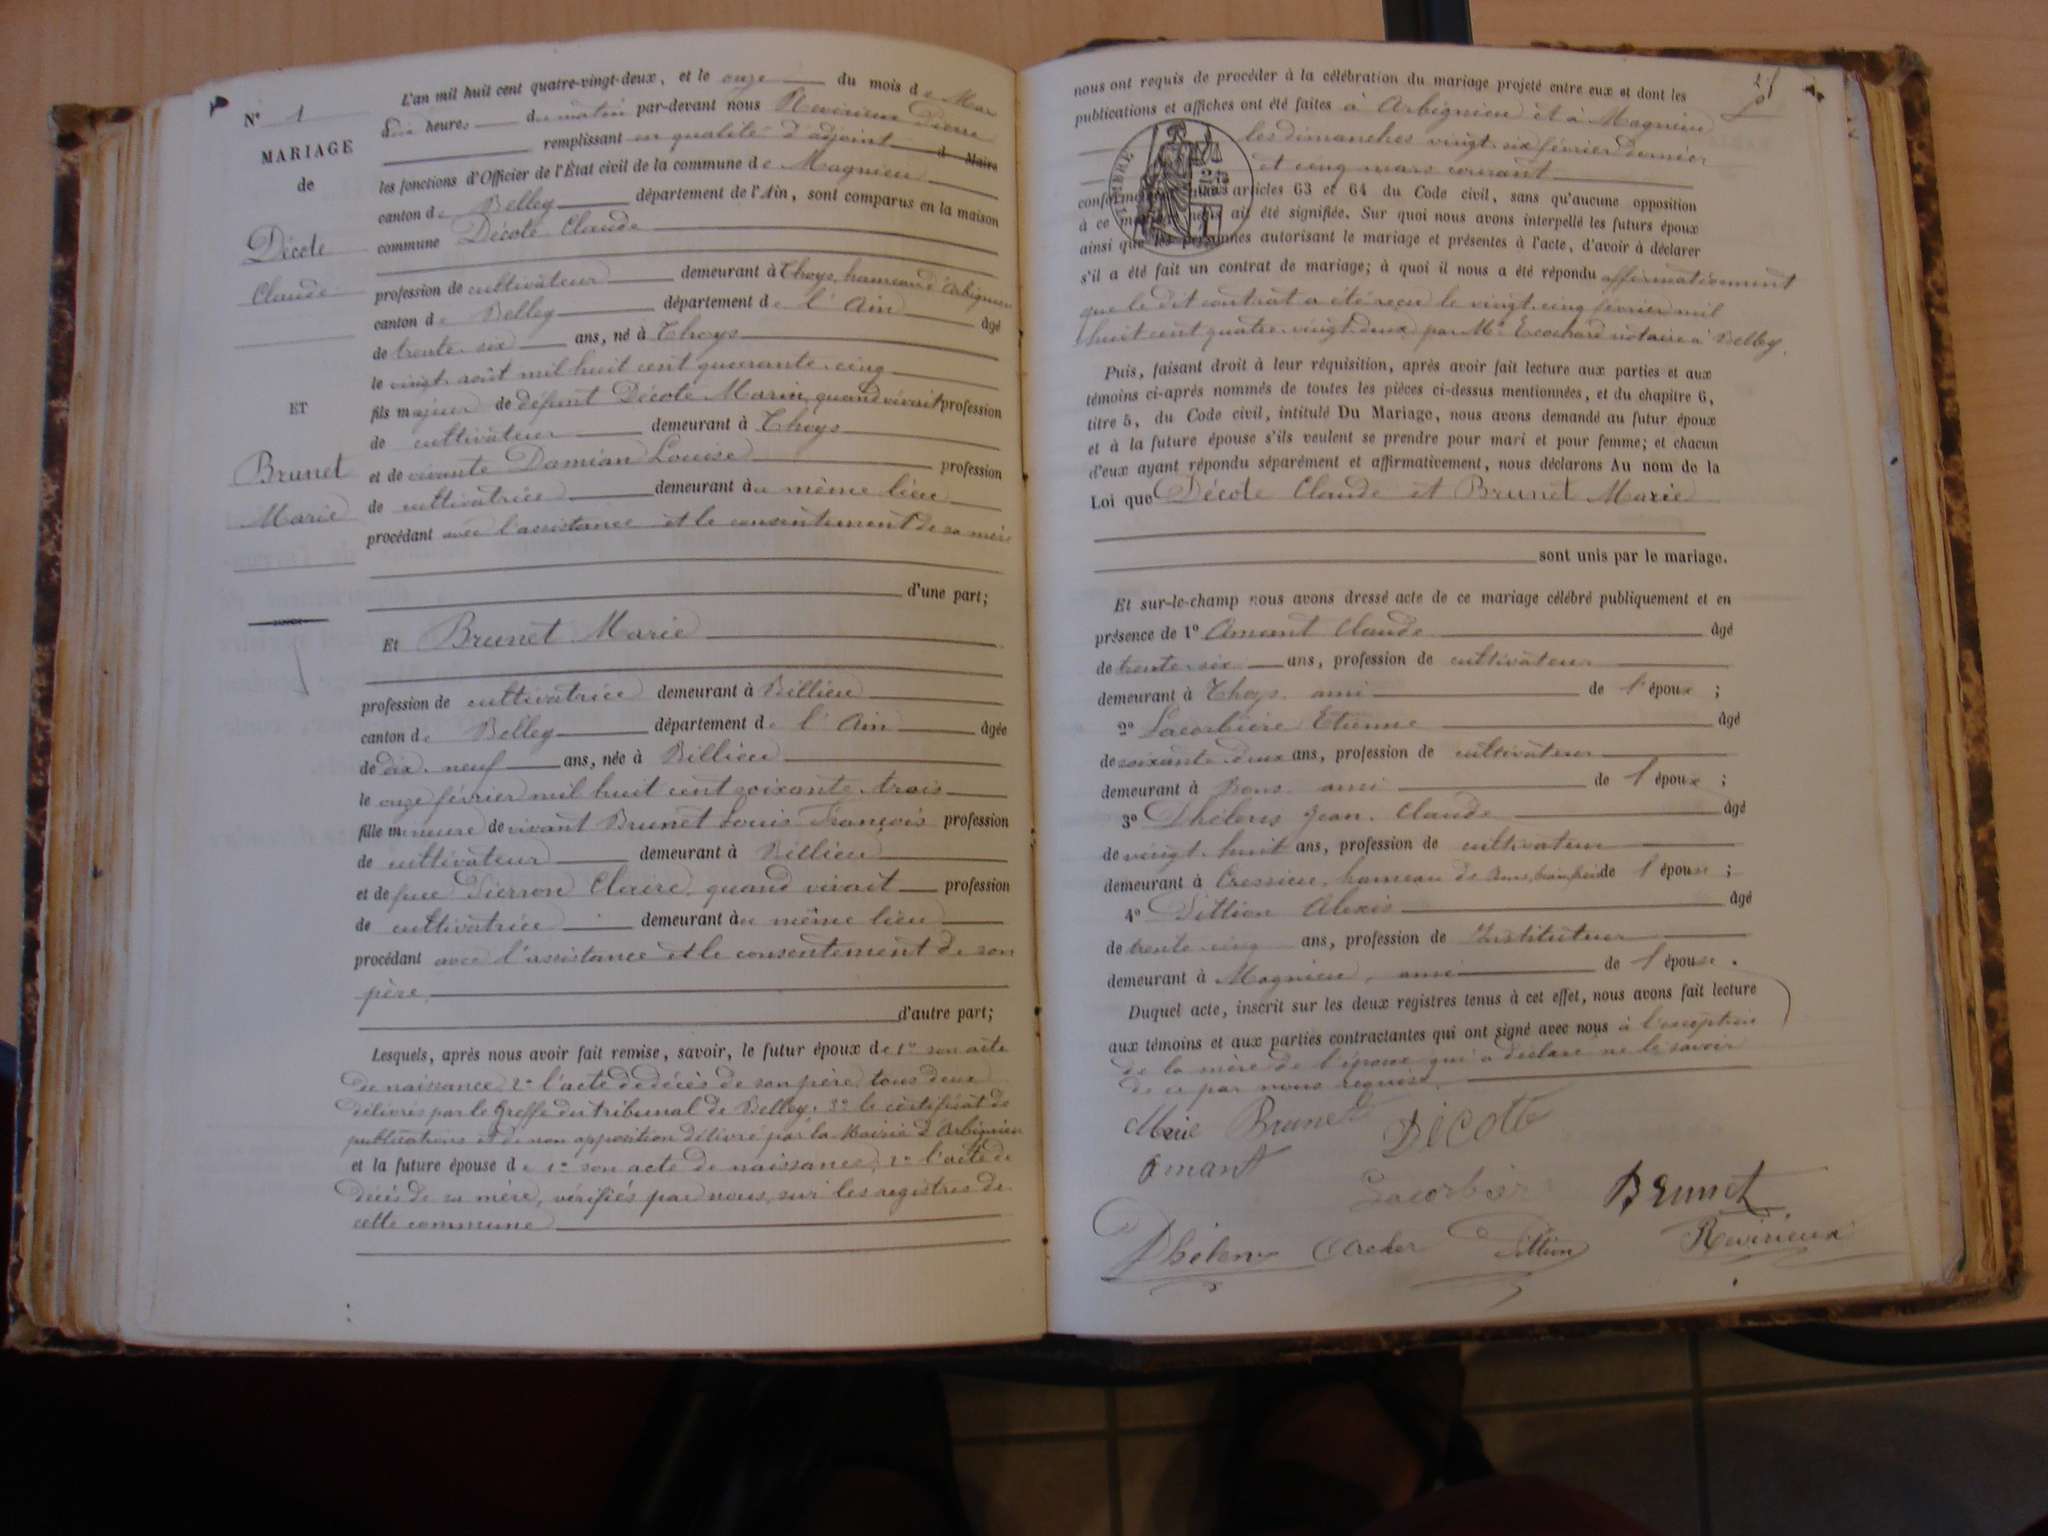 N° 1
MARIAGE
de
Décote
Claude
ET
Brunet
Marie
L'an mil huit cent quatre-vingt-deux, et le onze du mois de Mars
heures du matin par-devant nous Revirieux Pierre
remplissant en qualité d'adjoint d Maire
les fonctions d'Officier de l'État civil de la commune de Magnieu
canton de Belley département de l'Ain, sont comparus en la maison
commune Décote Claude
profession de cultivateur demeurant à Thoys, hameau d'Arbignieu
canton de Belley département de l'Ain âgé
de trente-six ans, né à Thoys
le vingt août mil huit cent quarante-cinq
fils majeur de défunt Décote Marin, quand vivait profession
de cultivateur demeurant à Thoys
et de vivante Damian Louise profession
de cultivatrice demeurant au même lieu
procédant avec l'assistance et le consentement de sa mère
d'une part;
Et Brunet Marie
profession de cultivatrice demeurant à Billieu
canton de Belley département de l'Ain âgée
de dix-neuf ans, née à Billieu
le onze février mil huit cent soixante-trois
fille mineure de vivant Brunet Louis François profession
de cultivateur demeurant à Billieu
et de feue Pierron Claire, quand vivait profession
de cultivatrice demeurant au même lieu
procédant avec l'assistance et le consentement de son
père,
d'autre part;
Lesquels, après nous avoir fait remise, savoir, le futur époux de 1° son acte
de naissance, 2° l'acte de décès de son père, tous deux
délivrés par le Greffe du tribunal de Belley, 3° le certificat de
publications et de non opposition délivré par la Mairie d'Arbignieu
et la future épouse de 1° son acte de naissance, 2° l'acte de
décès de sa mère, vérifiés par nous, sur les registres de
cette commune
nous ont requis de procéder à la célébration du mariage projeté entre eux et dont les
publications et affiches ont été faites à Arbignieu et à Magnieu
les dimanches vingt-six février dernier
et cinq mars courant
TIMBRE
conformément aux articles 63 et 64 du Code civil, sans qu'aucune opposition
à ce mariage nous ait été signifiée. Sur quoi nous avons interpellé les futurs époux
ainsi que les personnes autorisant le mariage et présentes à l'acte, d'avoir à déclarer
s'il a été fait un contrat de mariage; à quoi il nous a été répondu affirmativement
que le dit contrat a été reçu le vingt-cinq février mil
huit cent quatre-vingt-deux par Me Ecochard notaire à Belley.
Puis, faisant droit à leur réquisition, après avoir fait lecture aux parties et aux
témoins ci-après nommés de toutes les pièces ci-dessus mentionnées, et du chapitre 6,
titre 5, du Code civil, intitulé Du Mariage, nous avons demandé au futur époux
et à la future épouse s'ils veulent se prendre pour mari et pour femme; et chacun
d'eux ayant répondu séparément et affirmativement, nous déclarons Au nom de la
Loi que Décote Claude et Brunet Marie
sont unis par le mariage.
Et sur-le-champ nous avons dressé acte de ce mariage célébré publiquement et en
présence de 1° Amant Claude âgé
de trente-six ans, profession de cultivateur
demeurant à Thoys, ami de l'époux ;
2° Lacorbière Etienne âgé
de soixante-deux ans, profession de cultivateur
demeurant à Bons, ami de l'époux ;
3° Dhélens Jean-Claude âgé
de vingt-huit ans, profession de cultivateur
demeurant à Cressieu, hameau de Bons, beau-frère de l'épouse ;
4° Dittion Alexis âgé
de trente-cinq ans, profession de Instituteur
demeurant à Magnieu, ami de l'épouse.
Duquel acte, inscrit sur les deux registres tenus à cet effet, nous avons fait lecture
aux témoins et aux parties contractantes qui ont signé avec nous à l'exception
de la mère de l'époux qui a déclaré ne le savoir
de ce par nous requise.
Marie Brunet Décote
Amant
Lacorbière Brunet
Dhélens Dittion Revirieux